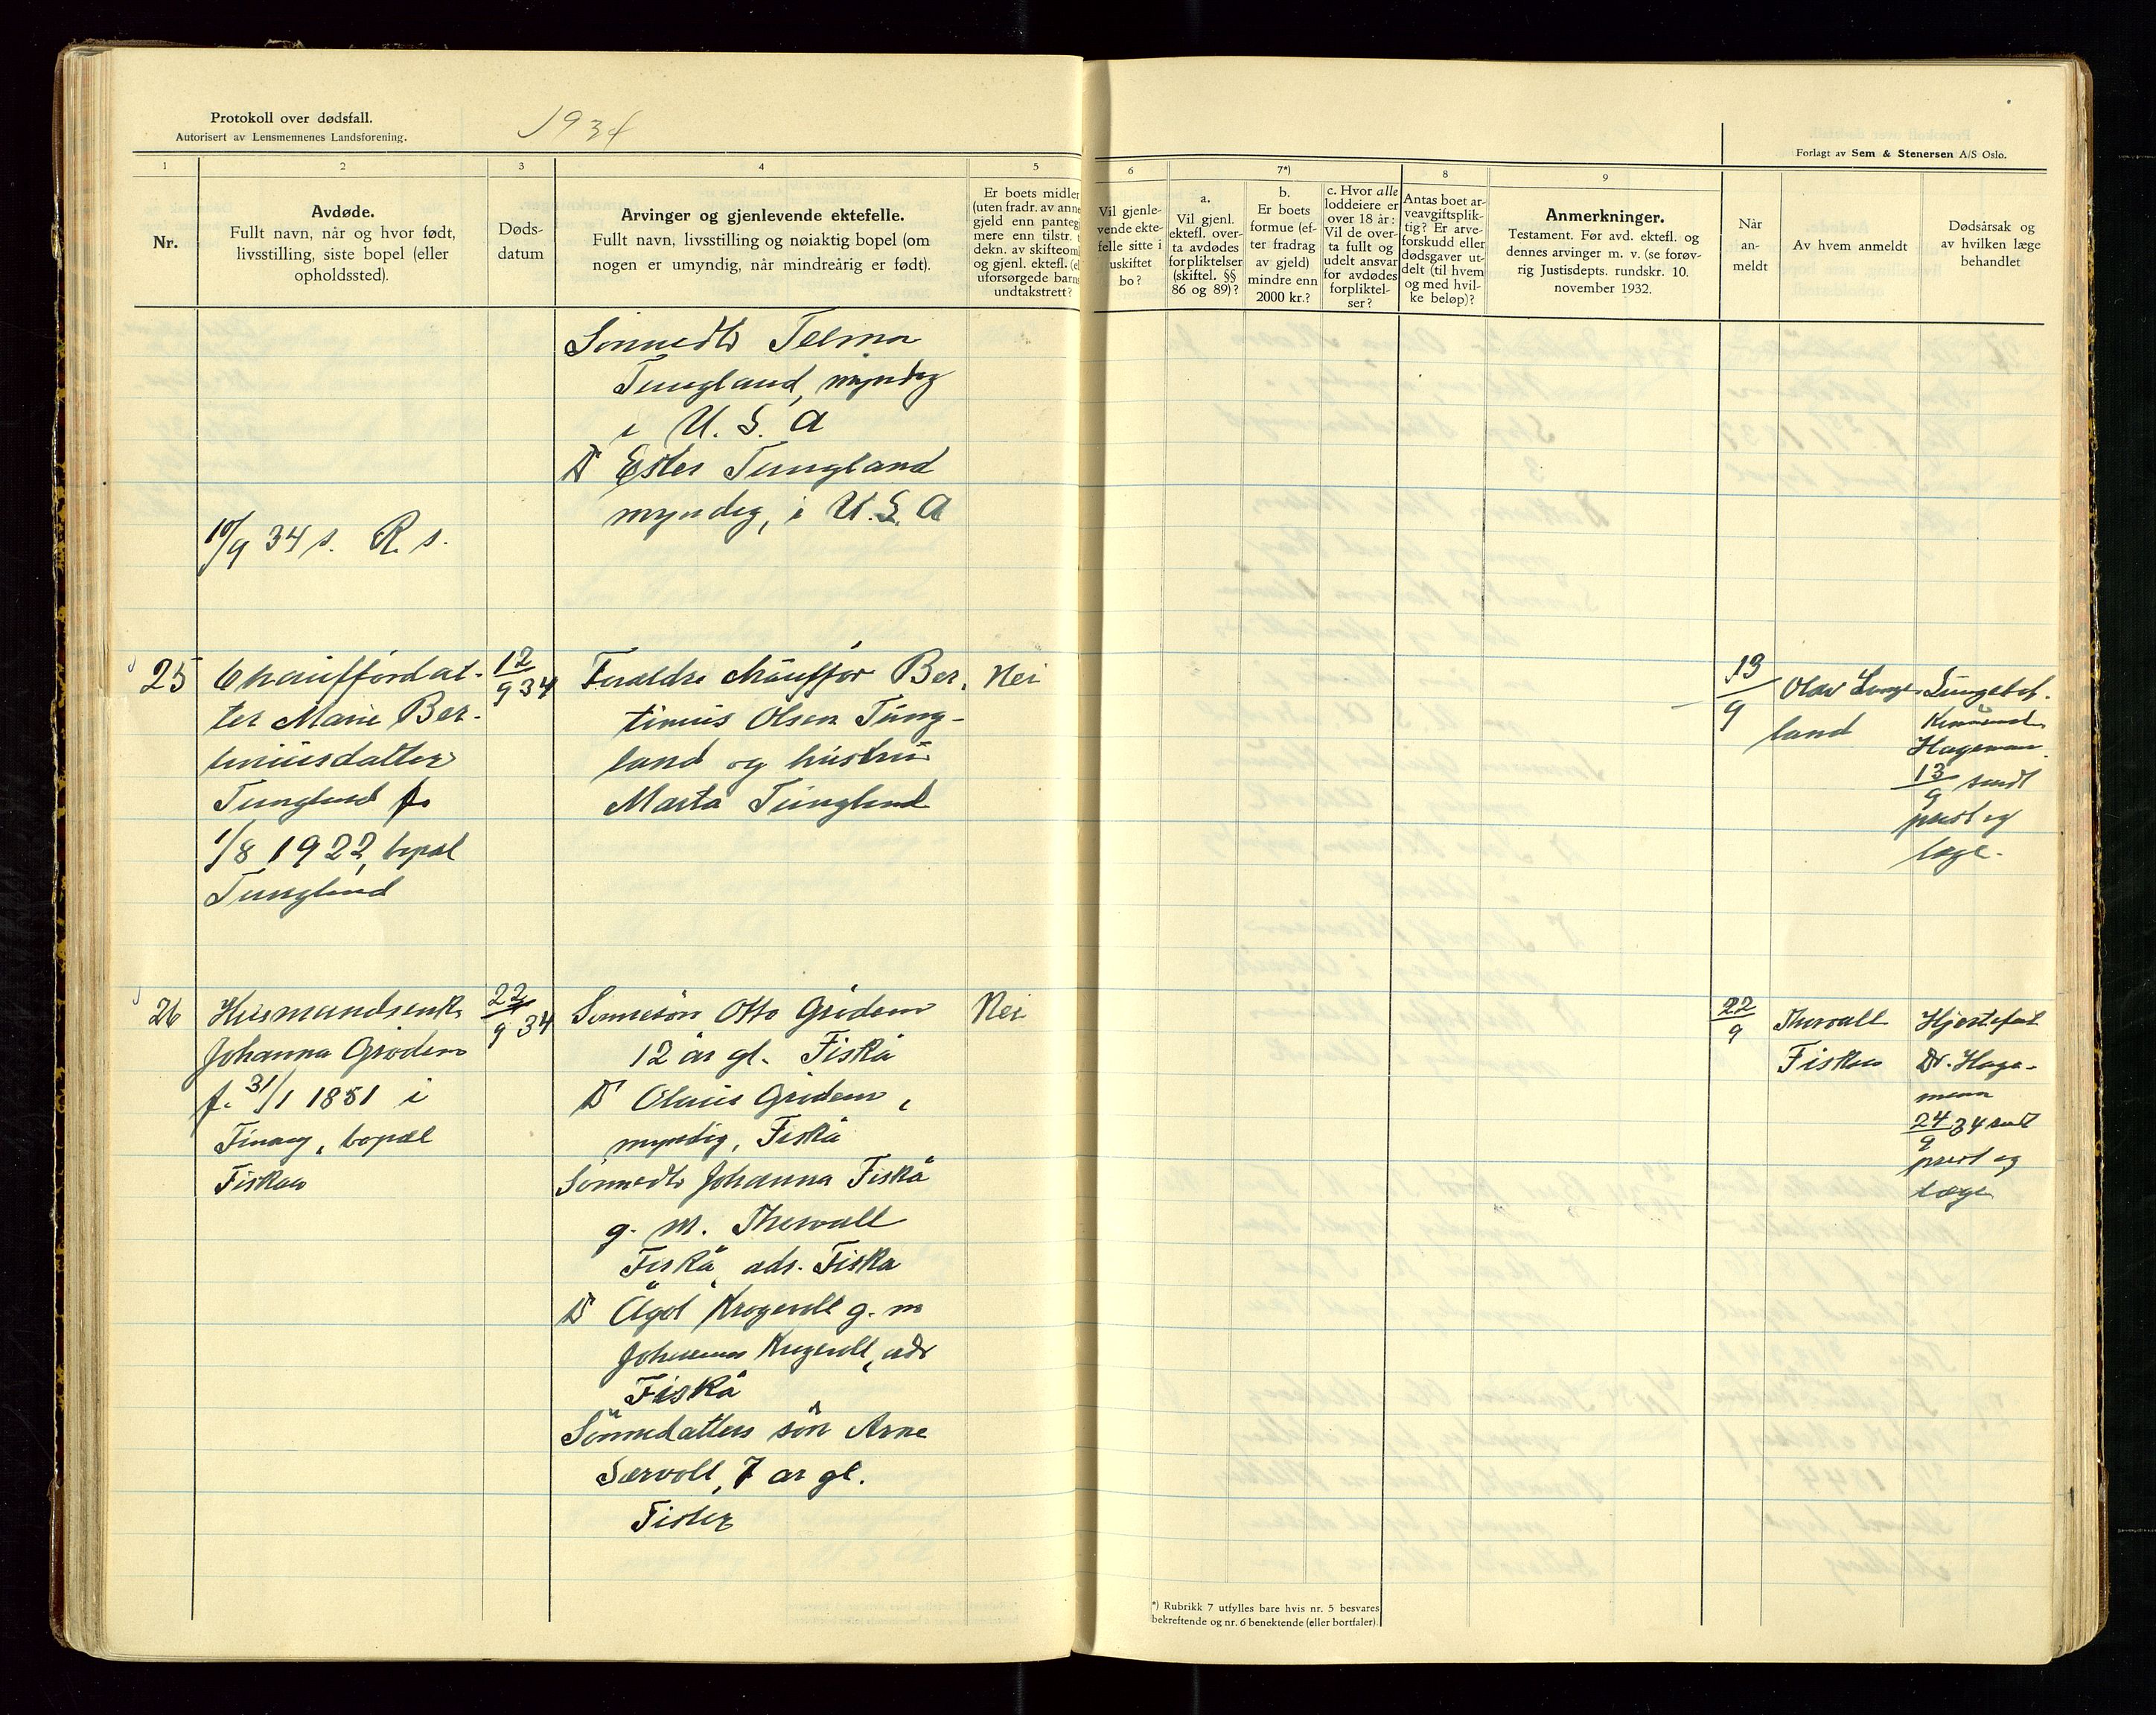 Protokoll over dødsfall.
Autorisert av Lensmennenes Landsforening.
1934
Forlagt av Sem & Stenersen A/S Oslo.
1
2
3
4
5
6
7*)
8
9
Nr.
Avdøde.
Fullt navn, når og hvor født,
livsstilling, siste bopel (eller
opholdssted).
Døds-
datum
Arvinger og gjenlevende ektefelle.
Fullt navn, livsstilling og nøiaktig bopel (om
nogen er umyndig, når mindreårig er født).
Er boets midler
(uten fradr. av anne
gjeld enn pantegj
mere enn tilstr. t
dekn. av skifteomk
og gjenl. ektefl. (el
uforsørgede barns
undtakstrett?
Vil gjenle-
vende ekte-
felle sitte i
uskiftet
bo?
a.
Vil gjenl.
ektefl. over-
ta avdødes
forpliktelser
(skiftel. §§
86 og 89)?
b.
Er boets
formue (ef-
ter fradrag
av gjeld)
mindre enn
2000 kr.?
c. Hvor alle
loddeiere er
over 18 år:
Vil de over-
ta fullt og
udelt ansvar
for avdødes
forpliktel-
ser?
Antas boet ar-
veavgiftsplik-
tig? Er arve-
forskudd eller
dødsgaver ut-
delt (til hvem
og med hvil-
ke beløp)?
Anmerkninger.
Testament. Før avd. ektefl. og
dennes arvinger m. v. (se forøv-
rig Justisdepts. rundskr. 10.
november 1932.
Når
an-
meldt
Av hvem anmeldt
Dødsårsak og
av hvilken læge
behandlet
Sönnedtr Telma
Tungland, myndig
i U. S. A
Dr Ester Tungland
myndig, i U.S.A
10/9 34 s. R. s.
25
Chauffördat-
ter Marie Ber-
tiniusdatter
Tungland f.
1/8 1922, bopæl
Tungland
12/9 34
Foreldre chauffør Ber-
tinius Olsen Tung-
land og hustru
Marta Tungland
Nei
13/9
Olav Tung-
land
Hageman
13/9 sendt
prest og
læge.
26
Husmandsenke
Johanna Grödem
f. 31/1 1851 i
Finnøy, bopæl
Fiskaa
22/9 34
Sönnesön Otto Grödem
12 år gl. Fiskå
Dr Olaus Grödem,
myndig, Fiskå
Sönnedtr Johanna Fiskå
g. m. Thorvall
Fiskå, adr. Fiskå
Dr Ågot Krogevoll g. m
Johannes Krogevoll, adr
Fiskå
Sönnedatters sön Arne
Særvoll, 7 år gl.
Fister
Nei
22/9
Thorvall
Fiskaa
Hjertefeil
Dr. Hage-
mann
24/9 34 sendt
prest og
læge
*) Rubrikk 7 utfylles bare hvis nr. 5 besvares
bekreftende og nr. 6 benektende (eller bortfaler).